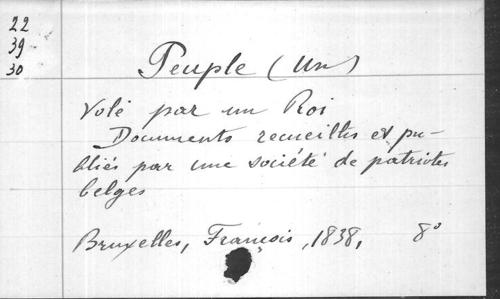 22
39
30
Peuple (Un)
volé par un Roi
Documents recueillis et pu-
bliés par une société de patriotes
belges
Bruxelles, François, 1838, 8°